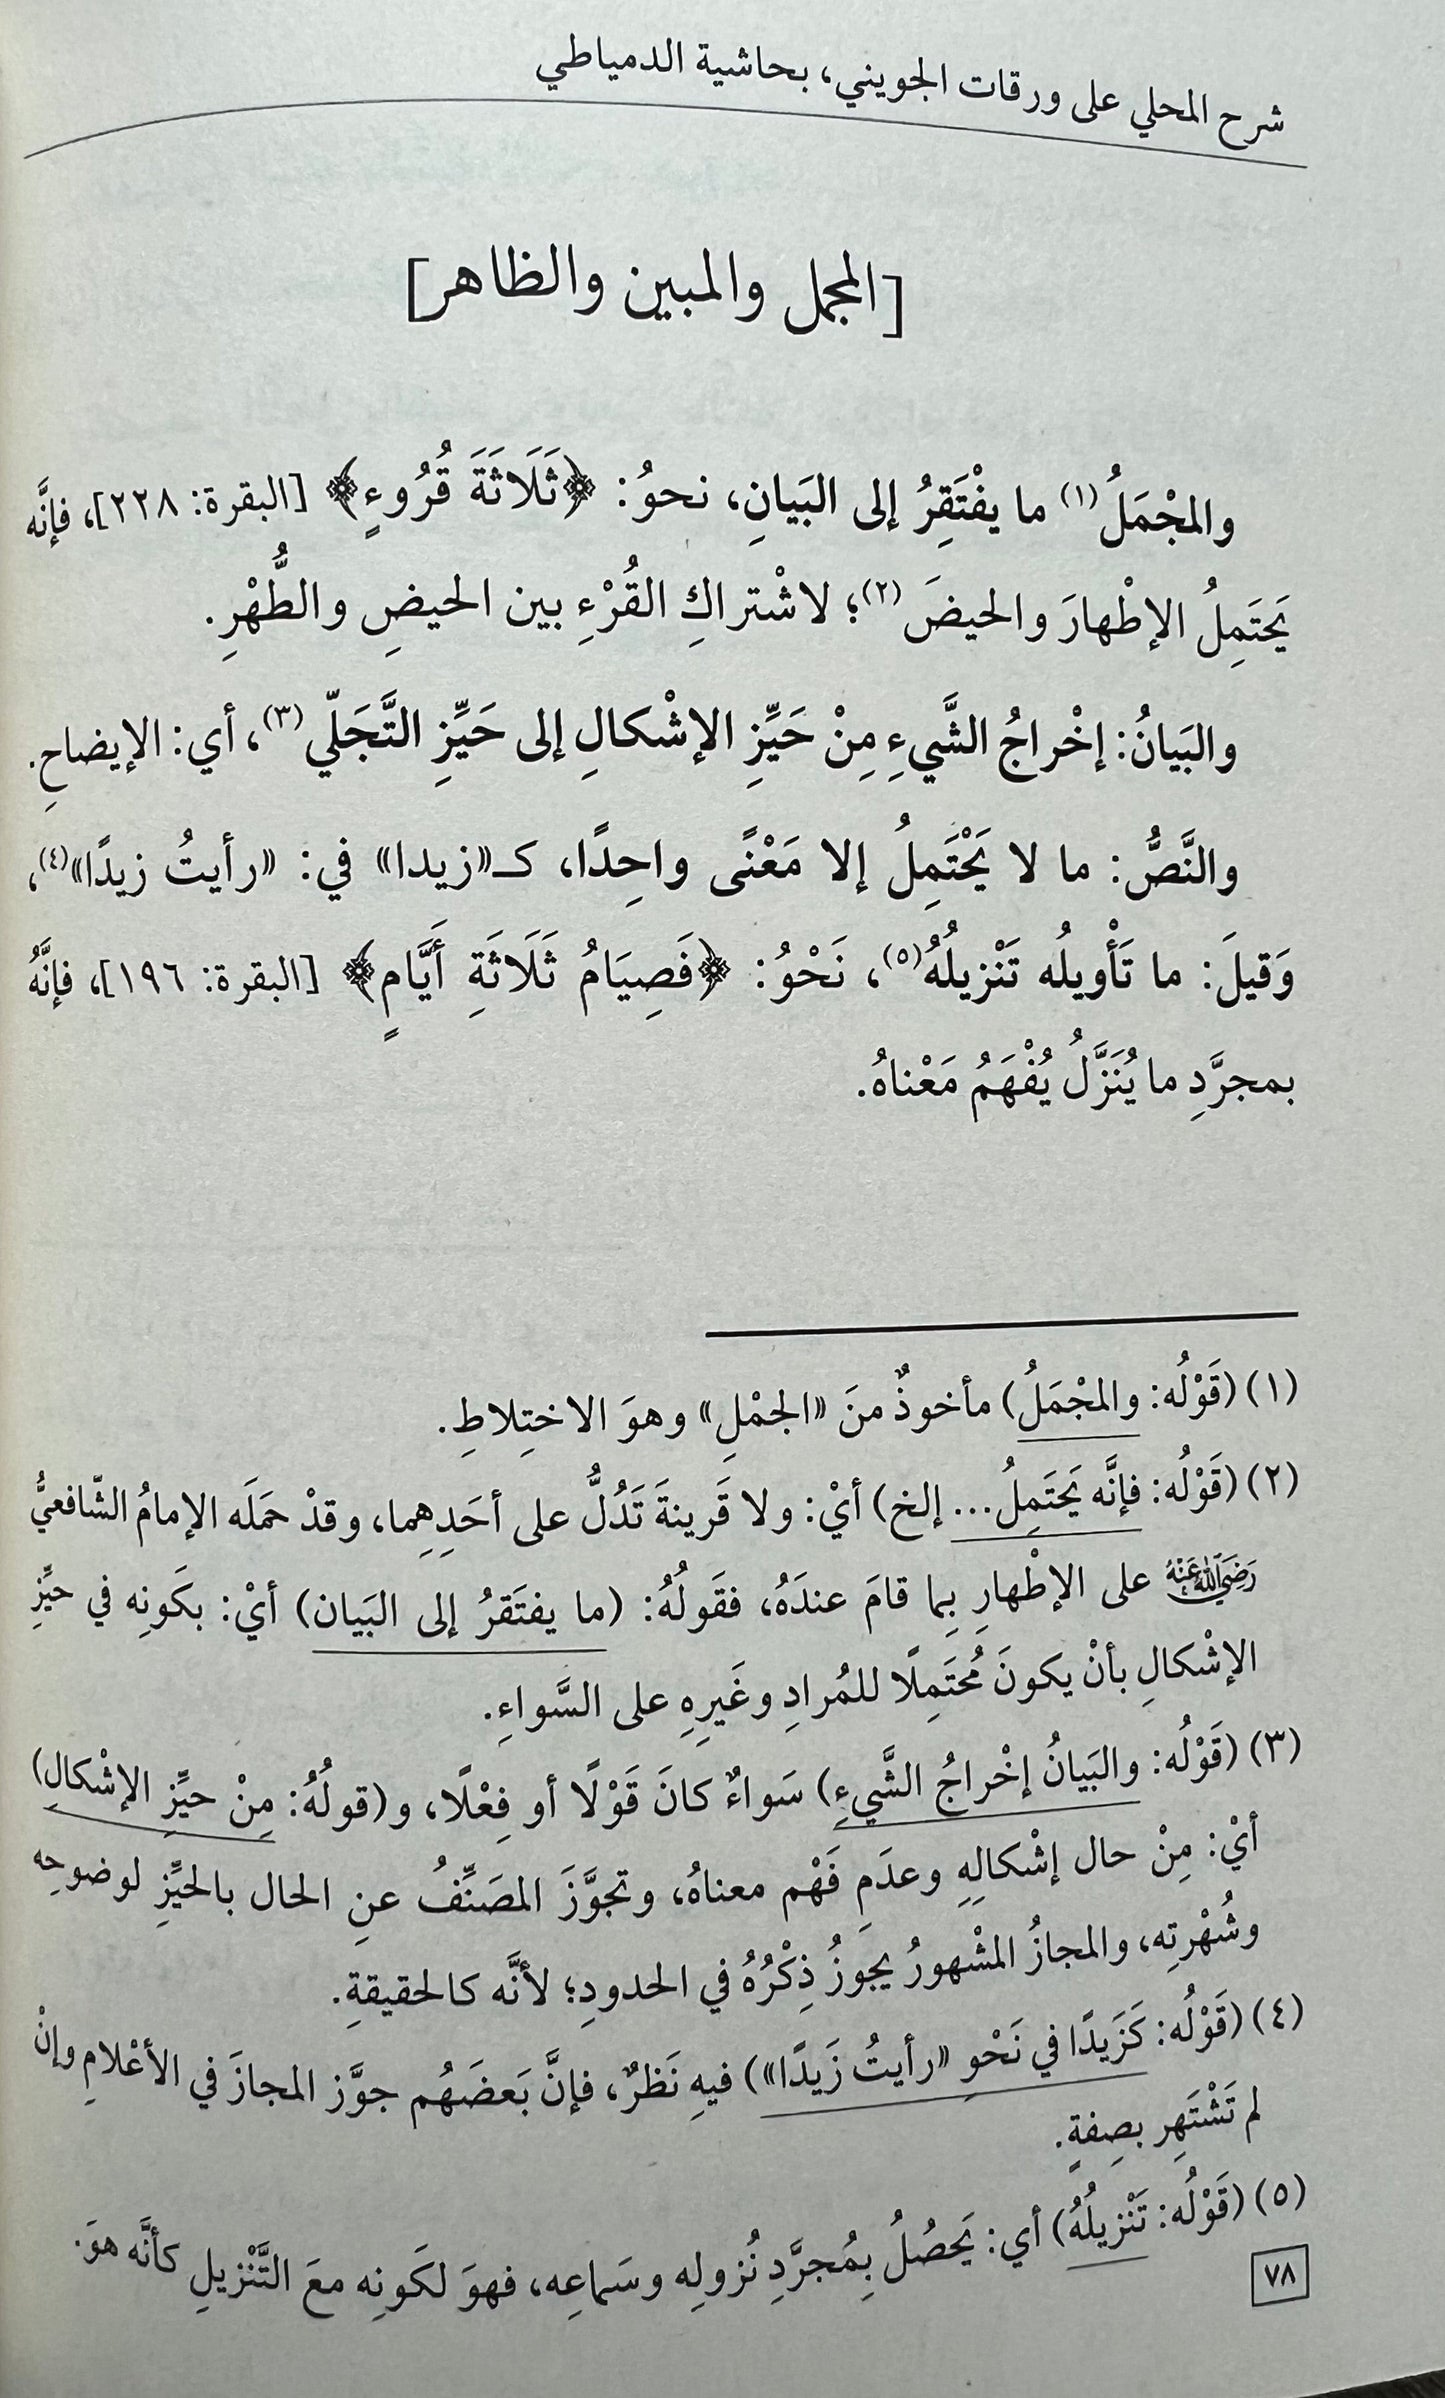 شرح المحلي على ورقات الجويني، بحاشية الدمياطي
[المجمل والمبين والظاهر]
والمجْمَلُ(١) ما يفْتَقِرُ إلى البَيانِ، نحوُ: ﴿ثَلَاثَةَ قُرُوءٍ﴾ [البقرة: ٢٢٨]، فإنَّه
يَحتَمِلُ الإطْهارَ والحيضَ(٢)؛ لاشْتراكِ القُرْءِ بين الحيضِ والطُّهْرِ.
والبَيانُ: إخْراجُ الشَّيءِ مِنْ حَيِّزِ الإشْكالِ إلى حَيِّزِ التَّجَلّي(٣)، أي: الإيضاحِ.
والنَّصُّ: ما لا يَحْتَمِلُ إلا مَعْنًى واحِدًا، كـ«زيدا» في: «رأيتُ زيدًا»(٤)،
وَقيلَ: ما تَأْويلُه تَنْزيلُهُ(٥)، نَحْوُ: ﴿فَصِيَامُ ثَلَاثَةِ أَيَّامٍ﴾ [البقرة: ١٩٦]، فإنَّهُ
بمجرَّدِ ما يُنَزَّلُ يُفْهَمُ مَعْناهُ.
(١) (قَوْلُه: والمجْمَلُ) مأخوذٌ منَ «الجمْلِ» وهوَ الاختِلاطِ.
(٢) (قَوْلُه: فإنَّه يَحتَمِلُ... إلخ) أيْ: ولا قَرينةَ تَدُلُّ على أحَدِهِما، وقدْ حمَلَه الإمامُ الشّافعيُّ
رَضِيَ اللَّهُ عَنْهُ على الإطْهارِ بِما قامَ عندَهُ، فقَولُهُ: (ما يفتَقرُ إلى البَيان) أيْ: بكَونِه في حيِّزِ
الإشْكالِ بأنْ يكونَ مُحتَمِلًا للمُرادِ وغَيرِهِ على السَّواءِ.
(٣) (قَوْلُه: والبَيانُ إخْراجُ الشَّيءِ) سَواءٌ كانَ قَوْلًا أو فِعْلًا، و(قولُهُ: مِنْ حيِّزِ الإشْكالِ)
أيْ: مِنْ حال إشْكالِهِ وعدَمِ فَهْم معناهُ، وتجوَّزَ المصَنِّفُ عنِ الحال بالحيِّزِ لوضوحِه
وشُهْرتِه، والمجازُ المشْهورُ يجوزُ ذِكْرُهُ في الحدودِ؛ لأنَّه كالحقيقةِ.
(٤) (قَوْلُه: كَزَيدًا في نَحْوِ «رأيتُ زَيدًا») فيهِ نَظرٌ، فإنَّ بَعضَهُم جوَّز المجازَ في الأعْلامِ وإنْ
لم تَشْتَهِر بصِفةٍ.
(٥) (قَوْلُه: تَنْزيلُهُ) أي: يَحصُلُ بِمُجرَّدِ نُزولِه وسَماعِه، فهوَ لكَونِه معَ التَّنْزيلِ كأنَّه هوَ.
٧٨